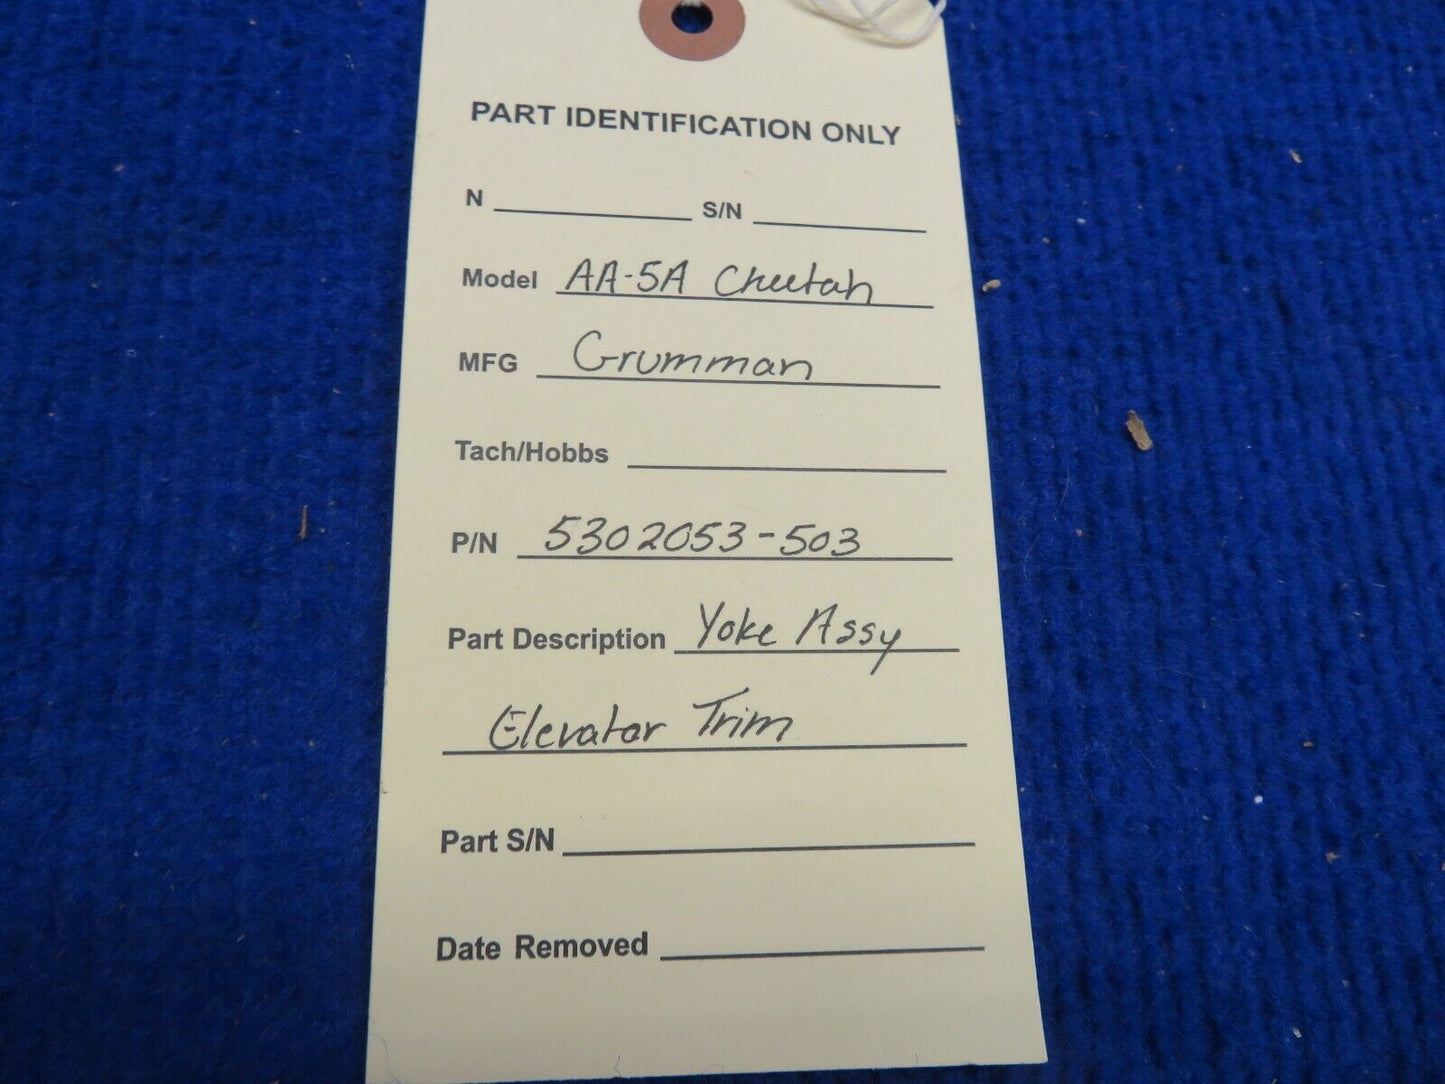 PART IDENTIFICATION ONLY
N S/N
Model AA-5A Cheetah
MFG Grumman
Tach/Hobbs
P/N 5302053-503
Part Description Yoke Assy
Elevator Trim
Part S/N
Date Removed